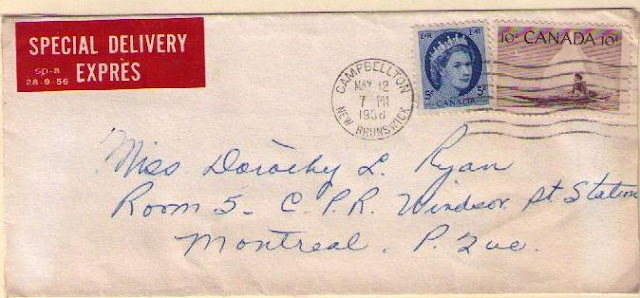 SPECIAL DELIVERY
EXPRÈS
SP-8
28-9-56
CAMPBELLTON
MAY 12
7 PM
1958
NEW BRUNSWICK
EIIR EIIR
5¢ CANADA 5¢
10¢ CANADA 10¢
Miss Dorothy L. Ryan
Room 5- C.P.R. Windsor St Station
Montreal, P. Que.